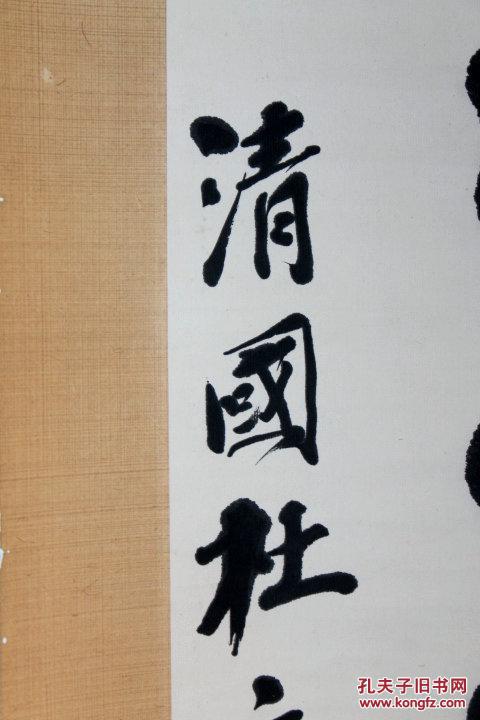 清國杜
孔夫子旧书网
www.kongfz.com